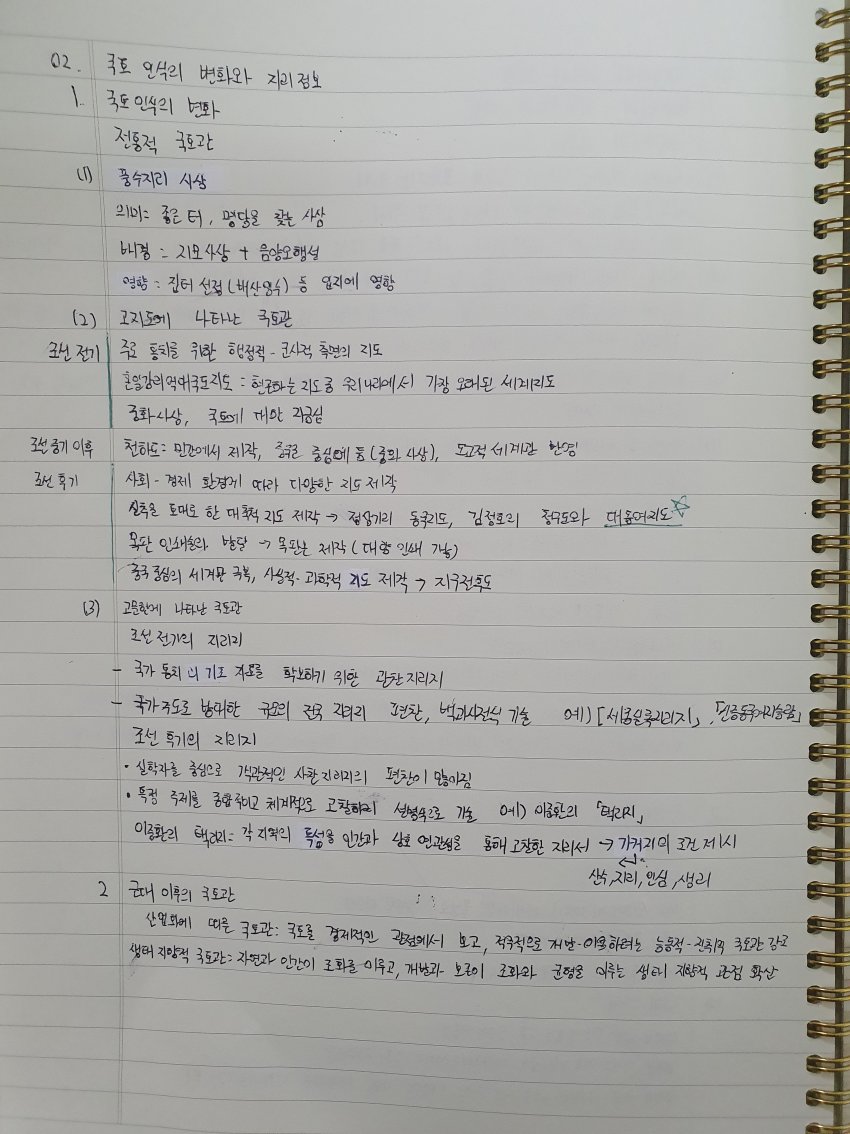 02. 국토 인식의 변화와 지리 정보
1. 국토 인식의 변화
전통적 국토관
(1) 풍수지리 사상
의미: 좋은 터, 명당을 찾는 사상
배경 : 지모사상 + 음양오행설
영향 : 집터 선정(배산임수) 등 입지에 영향
(2) 고지도에 나타난 국토관
조선 전기 주로 통치를 위한 행정적-군사적 측면의 지도
혼일강리역대국도지도 : 현존하는 지도 중 우리나라에서 가장 오래된 세계지도
중화사상, 국토에 대한 자긍심
조선 중기 이후 천하도: 민간에서 제작, 중국을 중심에 둠(중화 사상), 도교적 세계관 반영
조선 후기 사회-경제 환경에 따라 다양한 지도 제작
실측을 토대로 한 대축척 지도 제작 → 정상기의 동국지도, 김정호의 청구도와 대동여지도
목판 인쇄술의 발달 → 목판본 제작(대량 인쇄 가능)
중국 중심의 세계관 극복, 사실적-과학적 지도 제작 → 지구전후도
(3) 고문헌에 나타난 국토관
조선 전기의 지리지
- 국가 통치의 기초 자료를 확보하기 위한 관찬지리지
- 국가 주도로 방대한 규모의 전국 지리지 편찬, 백과사전식 기술 예) [세종실록지리지」, 「신증동국여지승람」
조선 후기의 지리지
• 실학자를 중심으로 객관적인 사찬지리지의 편찬이 많아짐
• 특정 주제를 종합적이고 체계적으로 고찰하여 설명식으로 기술 예) 이중환의 「택리지」
이중환의 택리지: 각 지역의 특성을 인간과 상호 연관성을 통해 고찰한 지리서 → 가거지의 조건 제시
산수, 지리, 인심, 생리
2 근대 이후의 국토관
산업화에 따른 국토관: 국토를 경제적인 관점에서 보고, 적극적으로 개발-이용하려는 능동적-진취적 국토관 강조
생태 지향적 국토관: 자연과 인간이 조화를 이루고, 개발과 보존이 조화와 균형을 이루는 생태 지향적 관점 확산